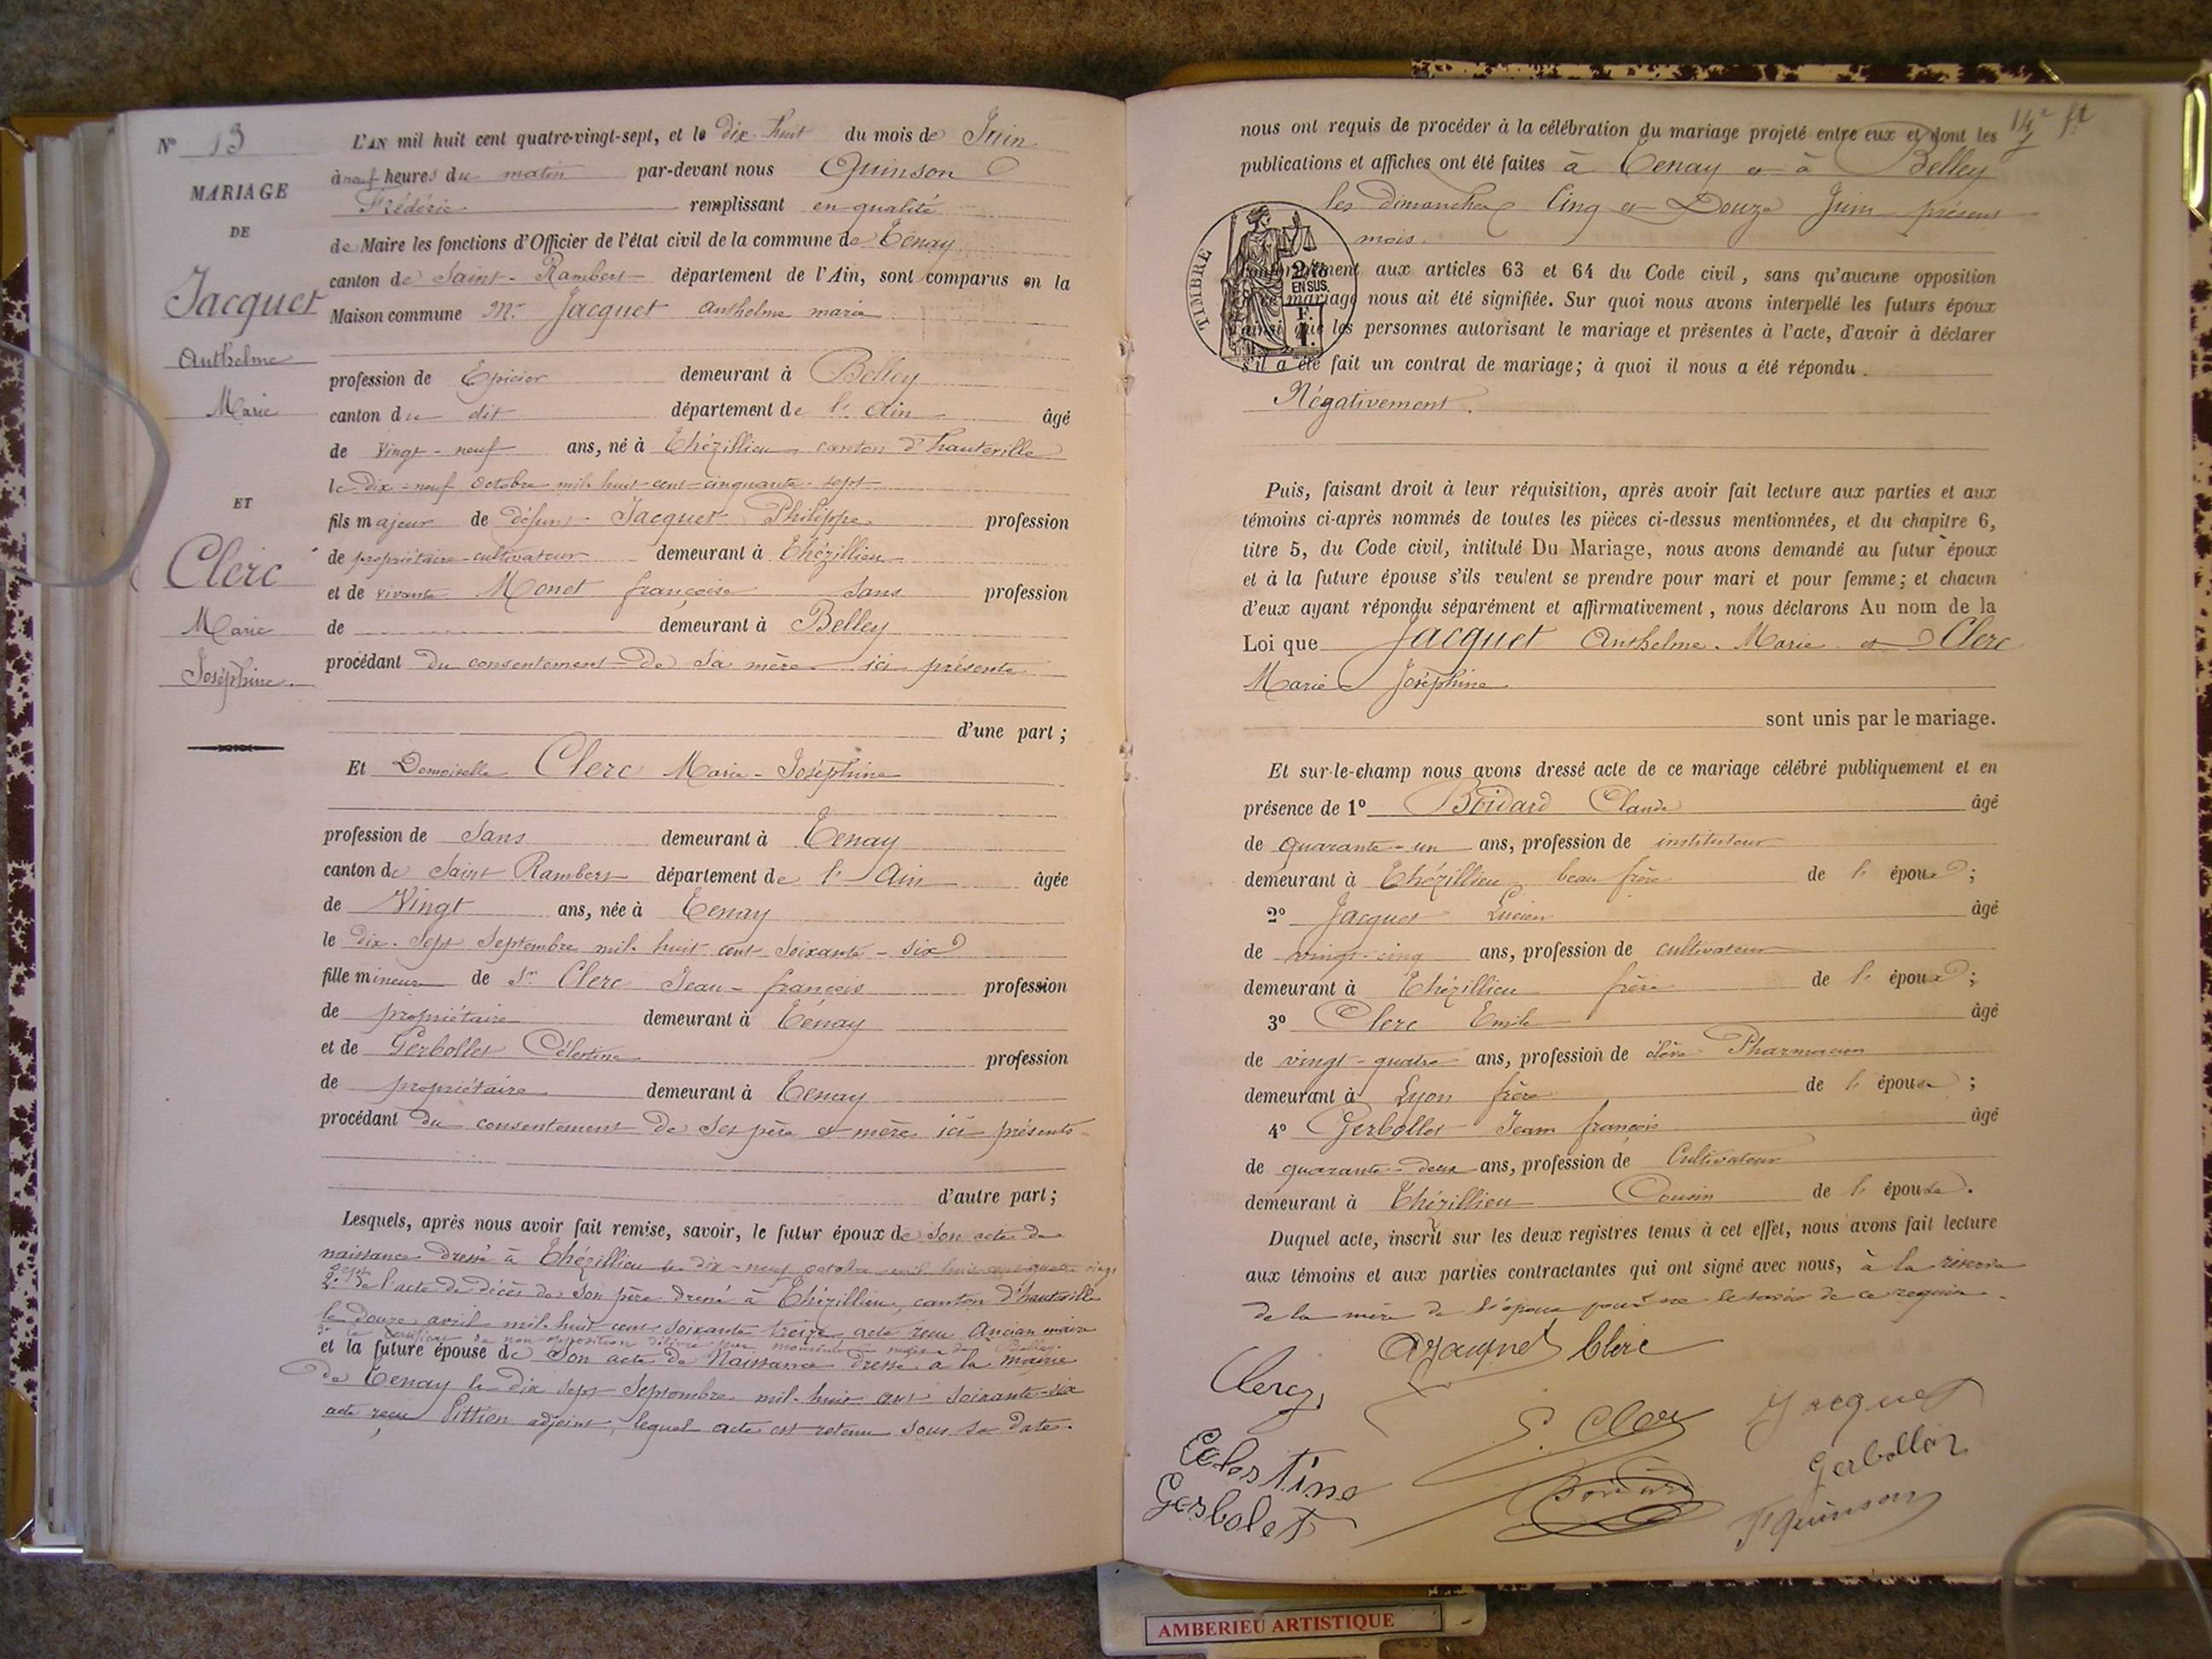 N° 13
MARIAGE
DE
Jacquet
Anthelme
Marie
ET
Clerc
Marie
Joséphine.
L'AN mil huit cent quatre-vingt-sept, et le dix huit du mois de Juin
à neuf heures du matin par-devant nous Quinson
Frédéric remplissant en qualité
de Maire les fonctions d'Officier de l'état civil de la commune de Tenay
canton de Saint-Rambert département de l'Ain, sont comparus en la
Maison commune Mr Jacquet Anthelme marie
profession de Épicier demeurant à Belley
canton du dit département de l'Ain âgé
de Vingt-neuf ans, né à Thézillieu canton d'hauteville
le dix-neuf octobre mil huit cent cinquante-sept
fils majeur de défunt Jacquet Philippe profession
de propriétaire-cultivateur demeurant à Thézillieu
et de vivante Monet françoise sans profession
de demeurant à Belley
procédant du consentement de sa mère ici présente
d'une part ;
Et Demoiselle Clerc Marie-Joséphine
profession de Sans demeurant à Tenay
canton de Saint Rambert département de l'Ain âgée
de Vingt ans, née à Tenay
le dix-sept Septembre mil huit cent soixante-six
fille mineure de Sr Clerc Jean-françois profession
de propriétaire demeurant à Tenay
et de Gerbollet Célestine profession
de propriétaire demeurant à Tenay
procédant du consentement de ses père et mère ici présents
d'autre part ;
Lesquels, après nous avoir fait remise, savoir, le futur époux de son acte de
naissance dressé à Thézillieu le dix-neuf octobre mil huit cent quatre vingt
sept
2° de l'acte de décès de son père dressé à Thézillieu, canton d'hauteville
le douze avril mil huit cent soixante treize acte reçu Ancian maire
3° le certificat de non opposition délivré par monsieur le maire de Belley.
et la future épouse de Son acte de Naissance dressé a la mairie
de Tenay le dix sept Septembre mil huit cent soixante-six
acte reçu adjoint, lequel acte est retenu sous sa date.
14e ft
nous ont requis de procéder à la célébration du mariage projeté entre eux et dont les
publications et affiches ont été faites à Tenay et à Belley
les dimanches Cinq et Douze Juin présent
mois.
TIMBRE
2/10
EN SUS.
F.
1.
Conformément aux articles 63 et 64 du Code civil, sans qu'aucune opposition
mariage nous ait été signifiée. Sur quoi nous avons interpellé les futurs époux
ainsi que les personnes autorisant le mariage et présentes à l'acte, d'avoir à déclarer
s'il a été fait un contrat de mariage; à quoi il nous a été répondu.
Négativement.
Puis, faisant droit à leur réquisition, après avoir fait lecture aux parties et aux
témoins ci-après nommés de toutes les pièces ci-dessus mentionnées, et du chapitre 6,
titre 5, du Code civil, intitulé Du Mariage, nous avons demandé au futur époux
et à la future épouse s'ils veulent se prendre pour mari et pour femme; et chacun
d'eux ayant répondu séparément et affirmativement, nous déclarons Au nom de la
Loi que Jacquet Anthelme-Marie et Clerc
Marie Joséphine
sont unis par le mariage.
Et sur-le-champ nous avons dressé acte de ce mariage célébré publiquement et en
présence de 1° Boidard Claude âgé
de quarante-un ans, profession de instituteur
demeurant à Thézillieu beau frère de l'époux ;
2° Jacquet Lucien âgé
de vingt-cinq ans, profession de cultivateur
demeurant à Thézillieu frère de l'époux ;
3° Clerc Emile âgé
de vingt-quatre ans, profession de élève Pharmacien
demeurant à Lyon frère de l'épouse ;
4° Gerbollet Jean françois âgé
de quarante-deux ans, profession de Cultivateur
demeurant à Thézillieu Cousin de l'épouse.
Duquel acte, inscrit sur les deux registres tenus à cet effet, nous avons fait lecture
aux témoins et aux parties contractantes qui ont signé avec nous, à la réserve
de la mère de l'époux pour ne le savoir de ce requise.
AJacquet Clerc
Clerc
E. Clerc
Jacquet
Celestine
Gerbolet
Boidard
Gerbollet
F Quinson
AMBERIEU ARTISTIQUE